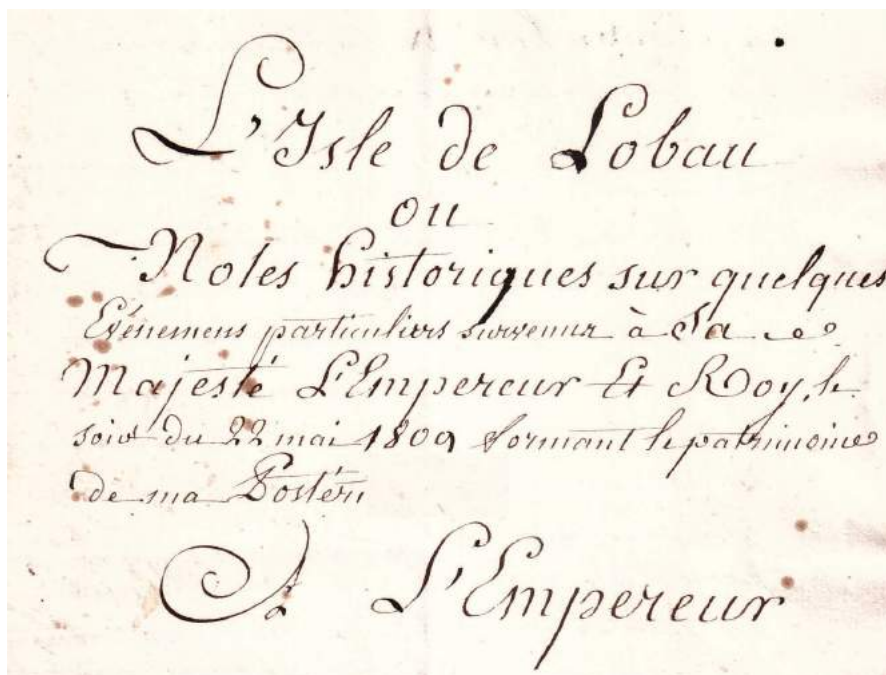 L'Isle de Lobau
ou
Notes historiques sur quelques
Evénemens particuliers survenus à Sa
Majesté L'Empereur Et Roy, le
soir du 22 mai 1809 formant le patrimoine
de ma Postéri
A L'Empereur